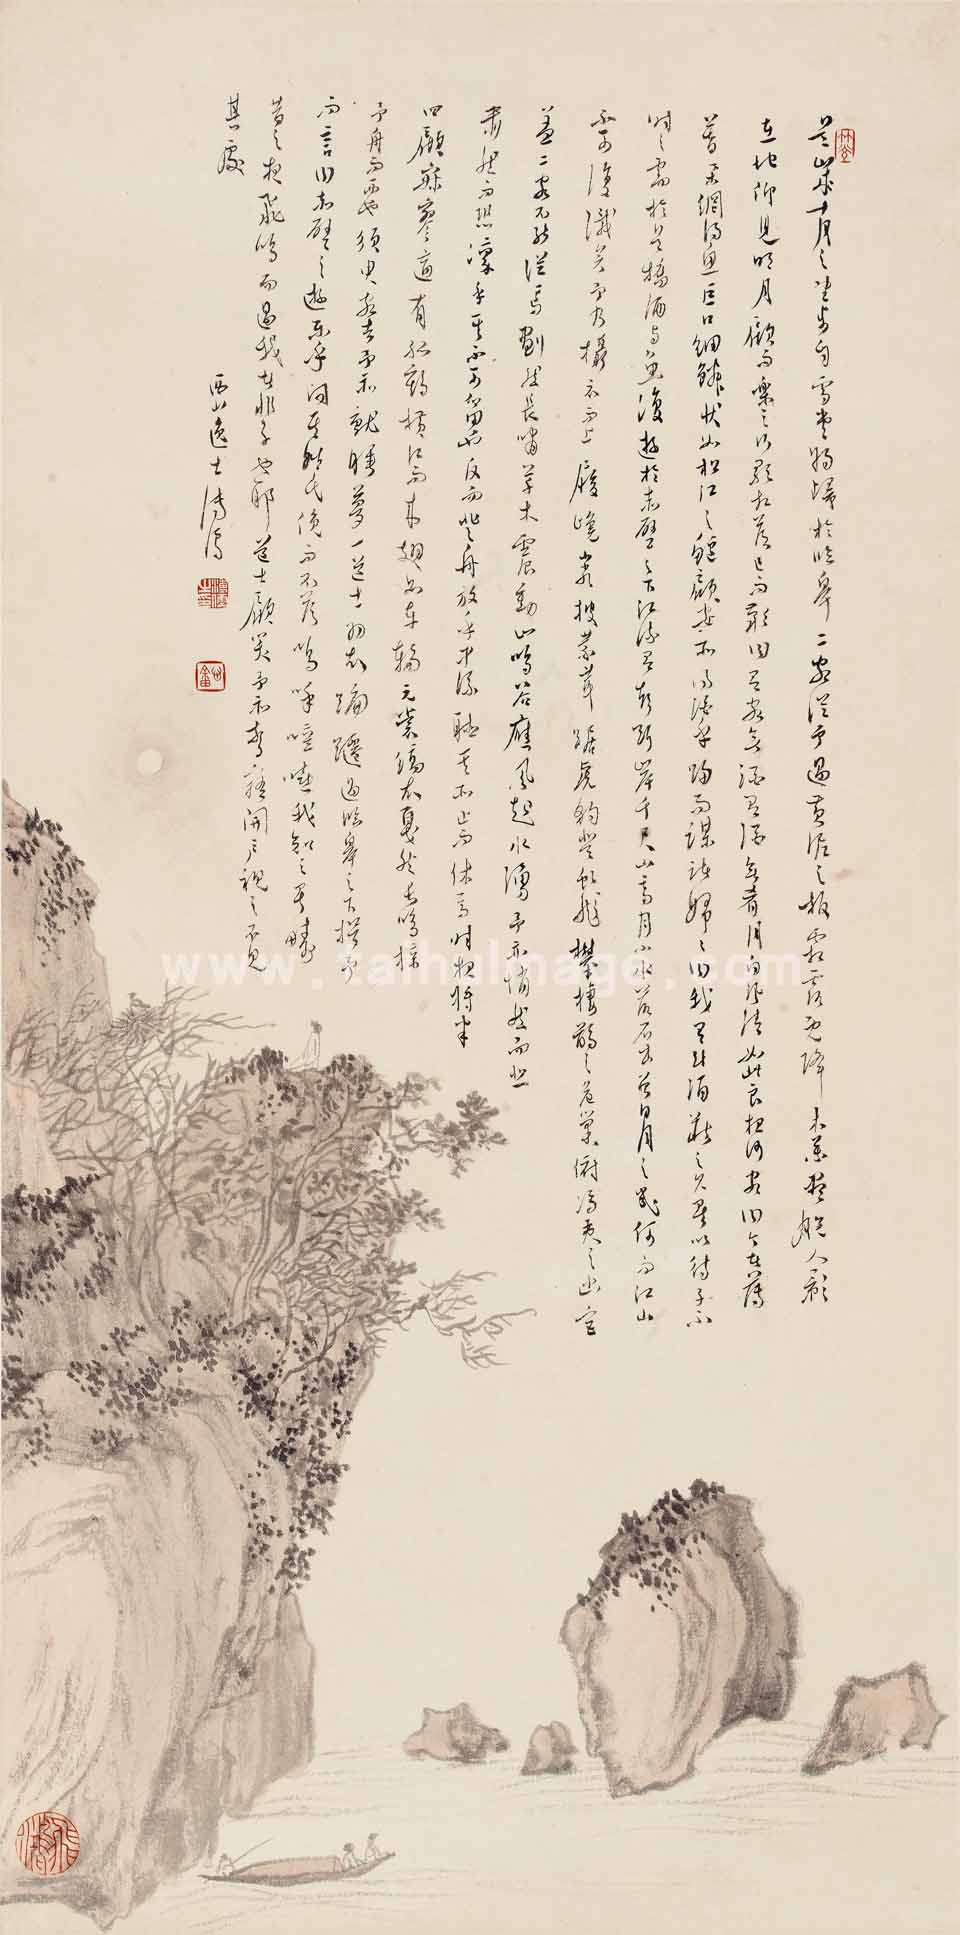 是歲十月之望步自雪堂將歸於臨皋二客從予過黃泥之坂霜露既降木葉盡脫人影
在地仰見明月顧而樂之行歌相答已而歎曰有客無酒有酒無肴月白風清如此良夜何客曰今者薄
暮舉網得魚巨口細鱗狀如松江之鱸顧安所得酒乎歸而謀諸婦婦曰我有斗酒藏之久矣以待子不
時之需於是攜酒與魚復遊於赤壁之下江流有聲斷岸千尺山高月小水落石出曾日月之幾何而江山
不可復識矣予乃攝衣而上履巉巖披蒙茸踞虎豹登虬龍攀棲鶻之危巢俯馮夷之幽宮
蓋二客不能從焉劃然長嘯草木震動山鳴谷應風起水湧予亦悄然而悲
肅然而恐凜乎其不可留也反而登舟放乎中流聽其所止而休焉時夜將半
四顧寂寥適有孤鶴橫江而來翅如車輪元裳縞衣戛然長鳴掠
予舟而西也須臾客去予亦就睡夢一道士羽衣蹁躚過臨皋之下揖予
而言曰赤壁之遊樂乎問其姓氏俛而不答嗚呼噫嘻我知之矣疇
昔之夜飛鳴而過我者非子也耶道士顧笑予亦驚寤開戶視之不見
其處
西山逸士溥儒
www.taihuimage.com